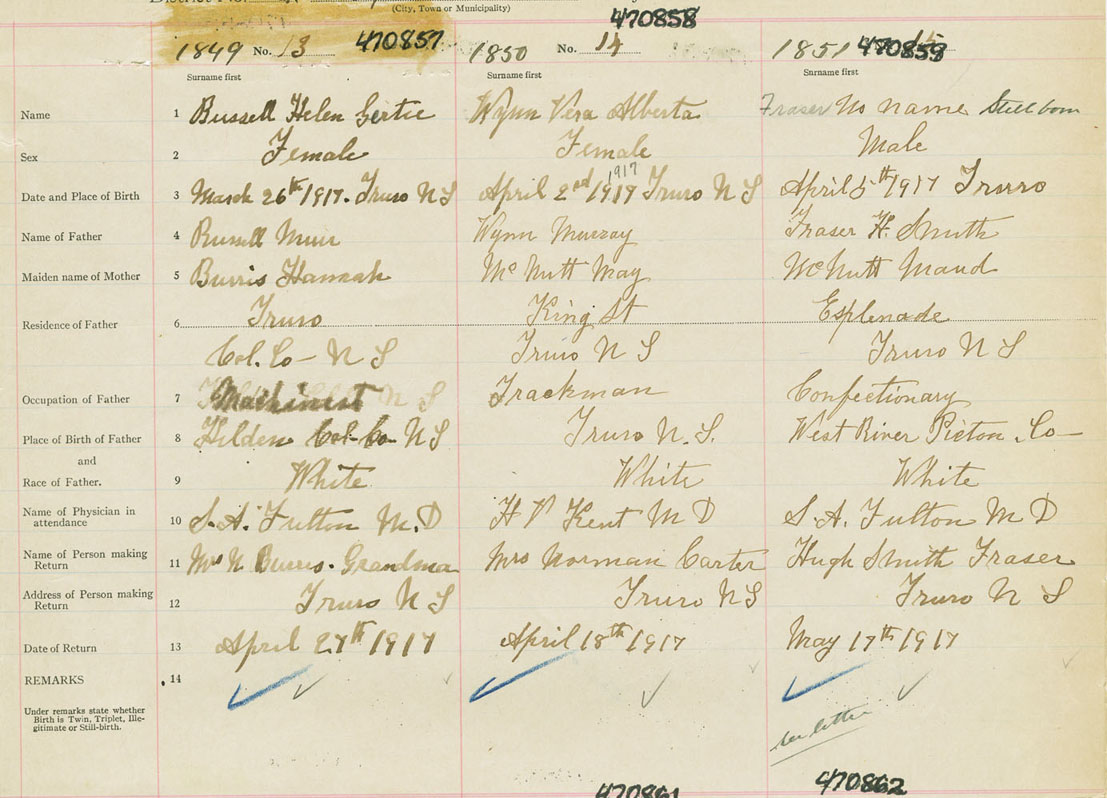 District No.
(City, Town or Municipality)
470858
1849 No. 13 470857 1850 No. 14 1851 470859
Surname first Surname first Surname first
Name 1 Russell Helen Gertie Wynn Vera Alberta Fraser No name Still born
Sex 2 Female Female Male
1917
Date and Place of Birth 3 March 26th 1917. Truro N S April 2nd 1917 Truro N S April 5th 1917 Truro
Name of Father 4 Russell Muir Wynn Murray Fraser H. Smith
Maiden name of Mother 5 Burris Hannah McNutt May McNutt Maud
Residence of Father 6 Truro King St Esplenade
Col. Co - N S Truro N S Truro N S
Occupation of Father 7 Machinest N S Trackman Confectionary
Place of Birth of Father 8 Hilden Col-Co N S Truro N.S. West River Picton Co -
and
Race of Father. 9 White White White
Name of Physician in
attendance 10 S. A. Fulton M.D H V Kent M D S A. Fulton M D
Name of Person making
Return 11 Mrs N Burris. Grandma Mrs Norman Carter Hugh Smith Fraser
Address of Person making
Return 12 Truro N S Truro N S Truro N S
Date of Return 13 April 27th 1917 April 18th 1917 May 17th 1917
REMARKS 14
Under remarks state whether
Birth is Twin, Triplet, Ille-
gitimate or Still-birth.
see letter
470861 470862